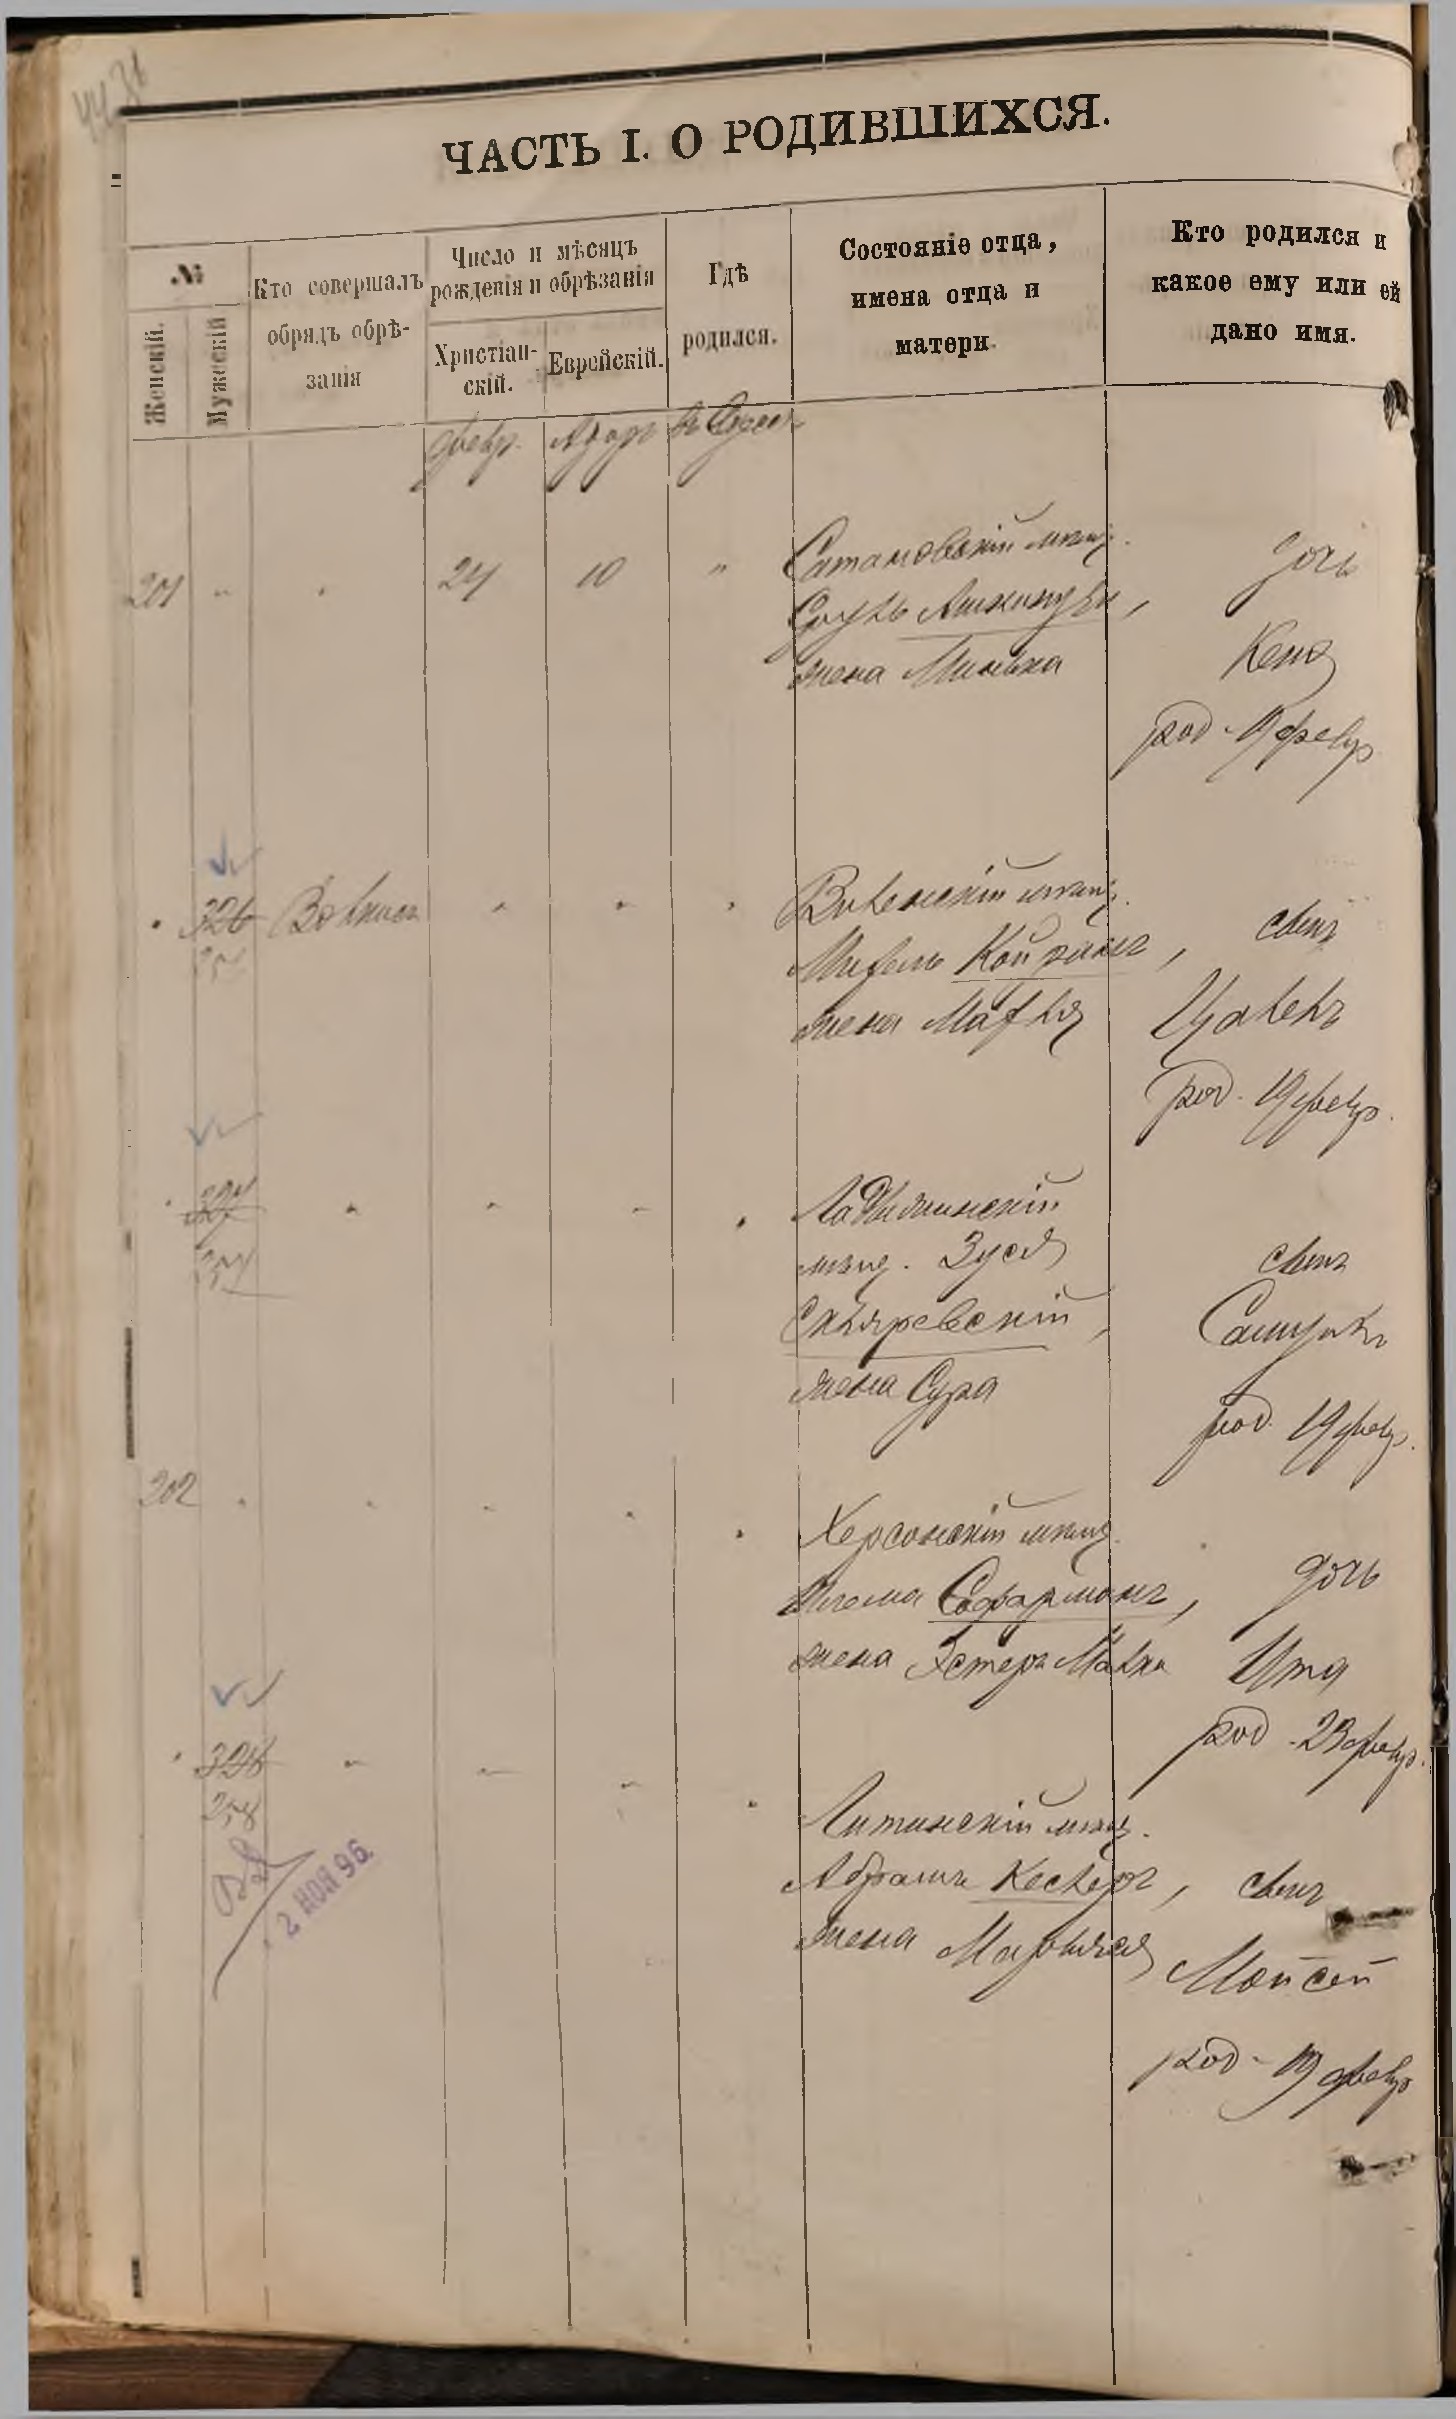 ЧАСТЬ I. О РОДИВШИХСЯ.
№
Женскій.
Мужескій
Кто совершалъ
обрядъ обрѣ-
занія
Число и мѣсяцъ
рожденія и обрѣзанія
Христіан-
скій.
Еврейскій.
Гдѣ
родился.
Состояніе отца,
имена отца и
матери
Кто родился и
какое ему или ей
дано имя.
февр. Адаръ Въ Одессѣ
201 " " 24 10 " Сатановскій мѣщ.
Сруль
жена Минька
дочь
Кеня
род 19 февр
326 Вольписъ
Виленскій мѣщ.
Михель Койранъ,
жена Марья
сынъ
Цалель
род. 19 февр.
327
257
Ладыжинскій
мѣщ. Зуся
Скляревскій,
жена Сура
сынъ
Самуилъ
род. 19 февр.
202
Херсонскій мѣщ.
Сафарманъ,
жена Эстеръ Малка
дочь
Ита
род. 23 февр.
328
258
2 НОЯ 96.
Литинскій мѣщ.
Абрамъ Кеслеръ,
жена Марьяся
сынъ
Мойсей
род. 19 февр